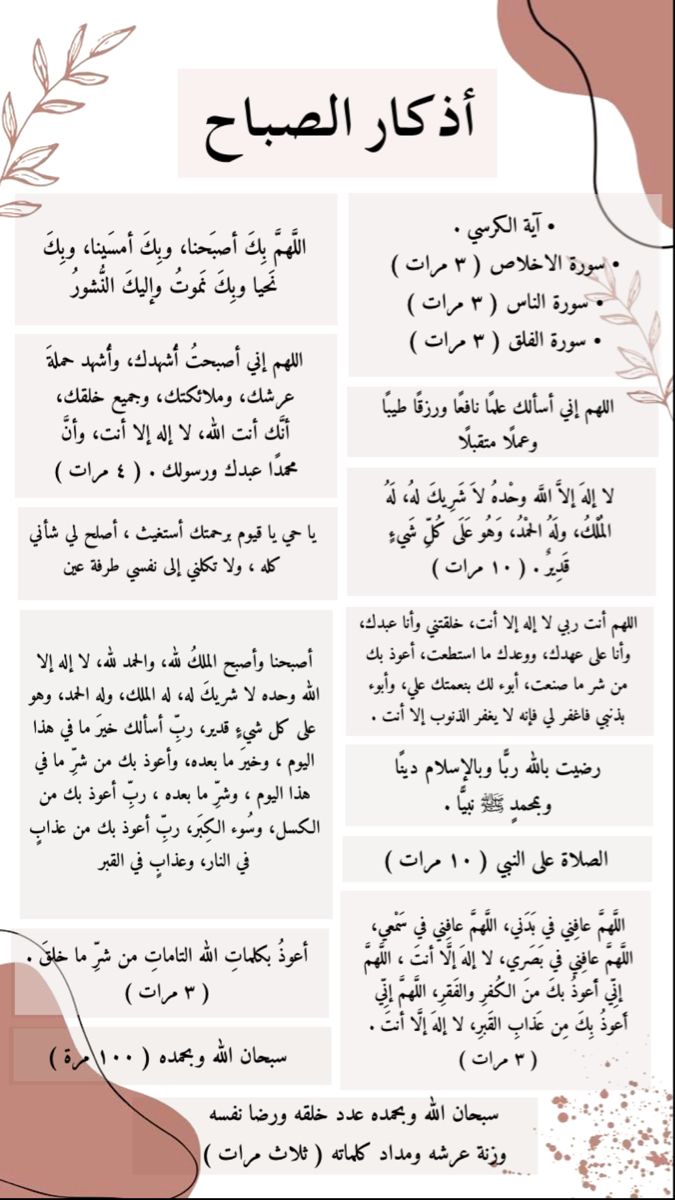 أذكار الصباح
• آية الكرسي .
• سورة الاخلاص ( ٣ مرات )
• سورة الناس ( ٣ مرات )
• سورة الفلق ( ٣ مرات )
اللهم إني أسألك علمًا نافعًا ورزقًا طيبًا
وعملًا متقبلًا
لا إلهَ إلاَّ اللَّه وحْدهُ لاَ شَرِيكَ لهُ، لَهُ
المُلْكُ، ولَهُ الحمْدُ، وَهُو عَلَى كُلِّ شَيءٍ
قَدِيرٌ . ( ١٠ مرات )
اللهم أنت ربي لا إله إلا أنت، خلقتني وأنا عبدك،
وأنا على عهدك، ووعدك ما استطعت، أعوذ بك
من شر ما صنعت، أبوء لك بنعمتك علي، وأبوء
بذنبي فاغفر لي فإنه لا يغفر الذنوب إلا أنت .
رضيت بالله ربًّا وبالإسلام دينًا
وبمحمدٍ ﷺ نبيًّا .
الصلاة على النبي ( ١٠ مرات )
اللهمَّ عافِني في بدَني، اللهمَّ عافِني في سَمْعي،
اللهمَّ عافِني في بَصَري، لا إلهَ إلَّا أنتَ ، اللهمَّ
إنِّي أعوذُ بكَ منَ الكُفرِ والفَقرِ، اللهمَّ إنِّي
أعوذُ بِكَ مِن عَذابِ القَبرِ، لا إلهَ إلَّا أنتَ .
( ٣ مرات )
اللَّهمَّ بِكَ أصبَحنا، وبِكَ أمسَينا، وبِكَ
نَحيا وبِكَ نَموتُ وإليكَ النُّشورُ
اللهم إني أصبحتُ أُشهدك، وأُشهد حملةَ
عرشك، وملائكتك، وجميع خلقك،
أنَّك أنت الله، لا إله إلا أنت، وأنَّ
محمدًا عبدك ورسولك . ( ٤ مرات )
يا حي يا قيوم برحمتك أستغيث ، أصلح لي شأني
كله ، ولا تكلني إلى نفسي طرفة عين
أصبحنا وأصبح الملكُ لله، والحمد لله، لا إله إلا
الله وحده لا شريكَ له، له الملك، وله الحمد، وهو
على كل شيءٍ قدير، ربِّ أسألك خيرَ ما في هذا
اليوم ، وخيرَ ما بعده، وأعوذ بك من شرِّ ما في
هذا اليوم ، وشرِّ ما بعده ، ربِّ أعوذ بك من
الكسل، وسُوء الكِبَر، ربِّ أعوذ بك من عذابٍ
في النار، وعذابٍ في القبر
أعوذُ بكلماتِ الله التاماتِ من شرِّ ما خلقَ .
( ٣ مرات )
سبحان الله وبحمده ( ١٠٠ مرة )
سبحان الله وبحمده عدد خلقه ورضا نفسه
وزنة عرشه ومداد كلماته ( ثلاث مرات )